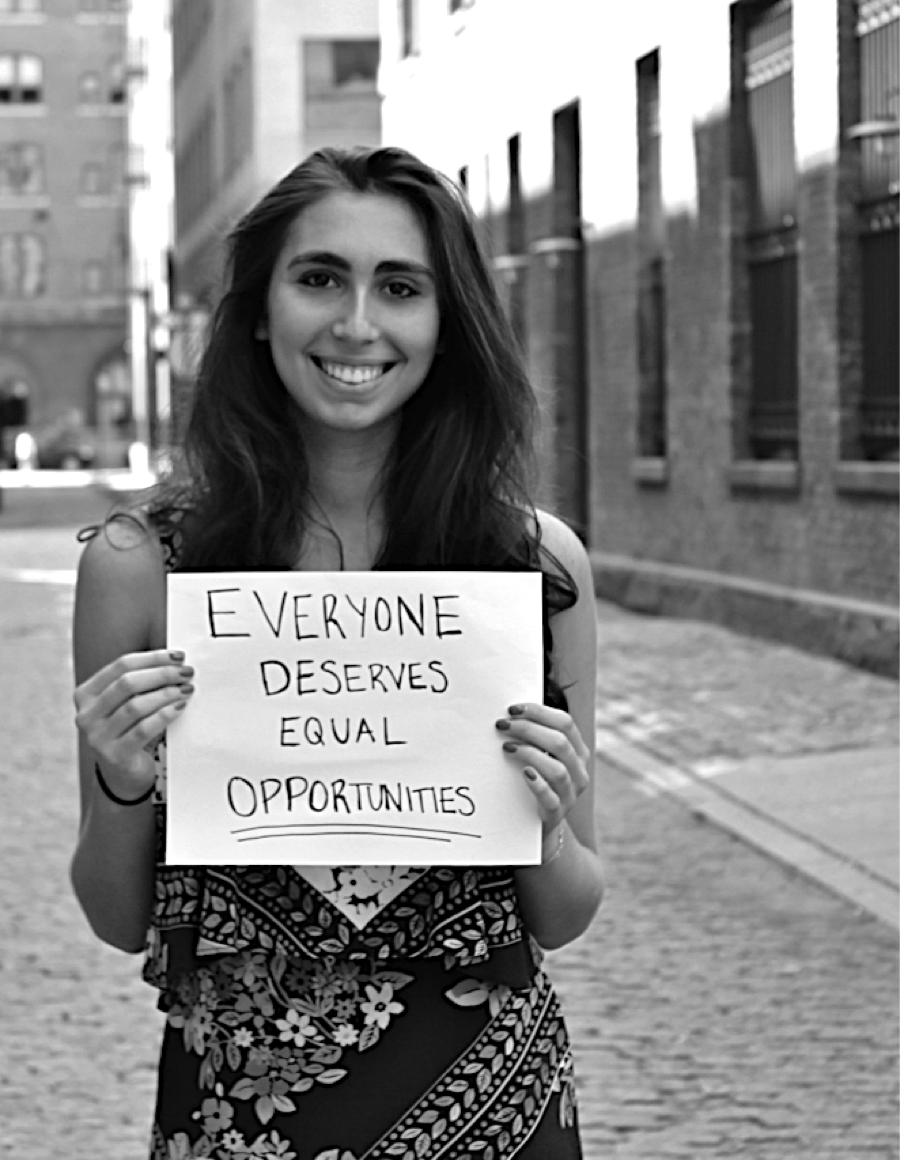 EVERYONE
DESERVES
EQUAL
OPPORTUNITIES